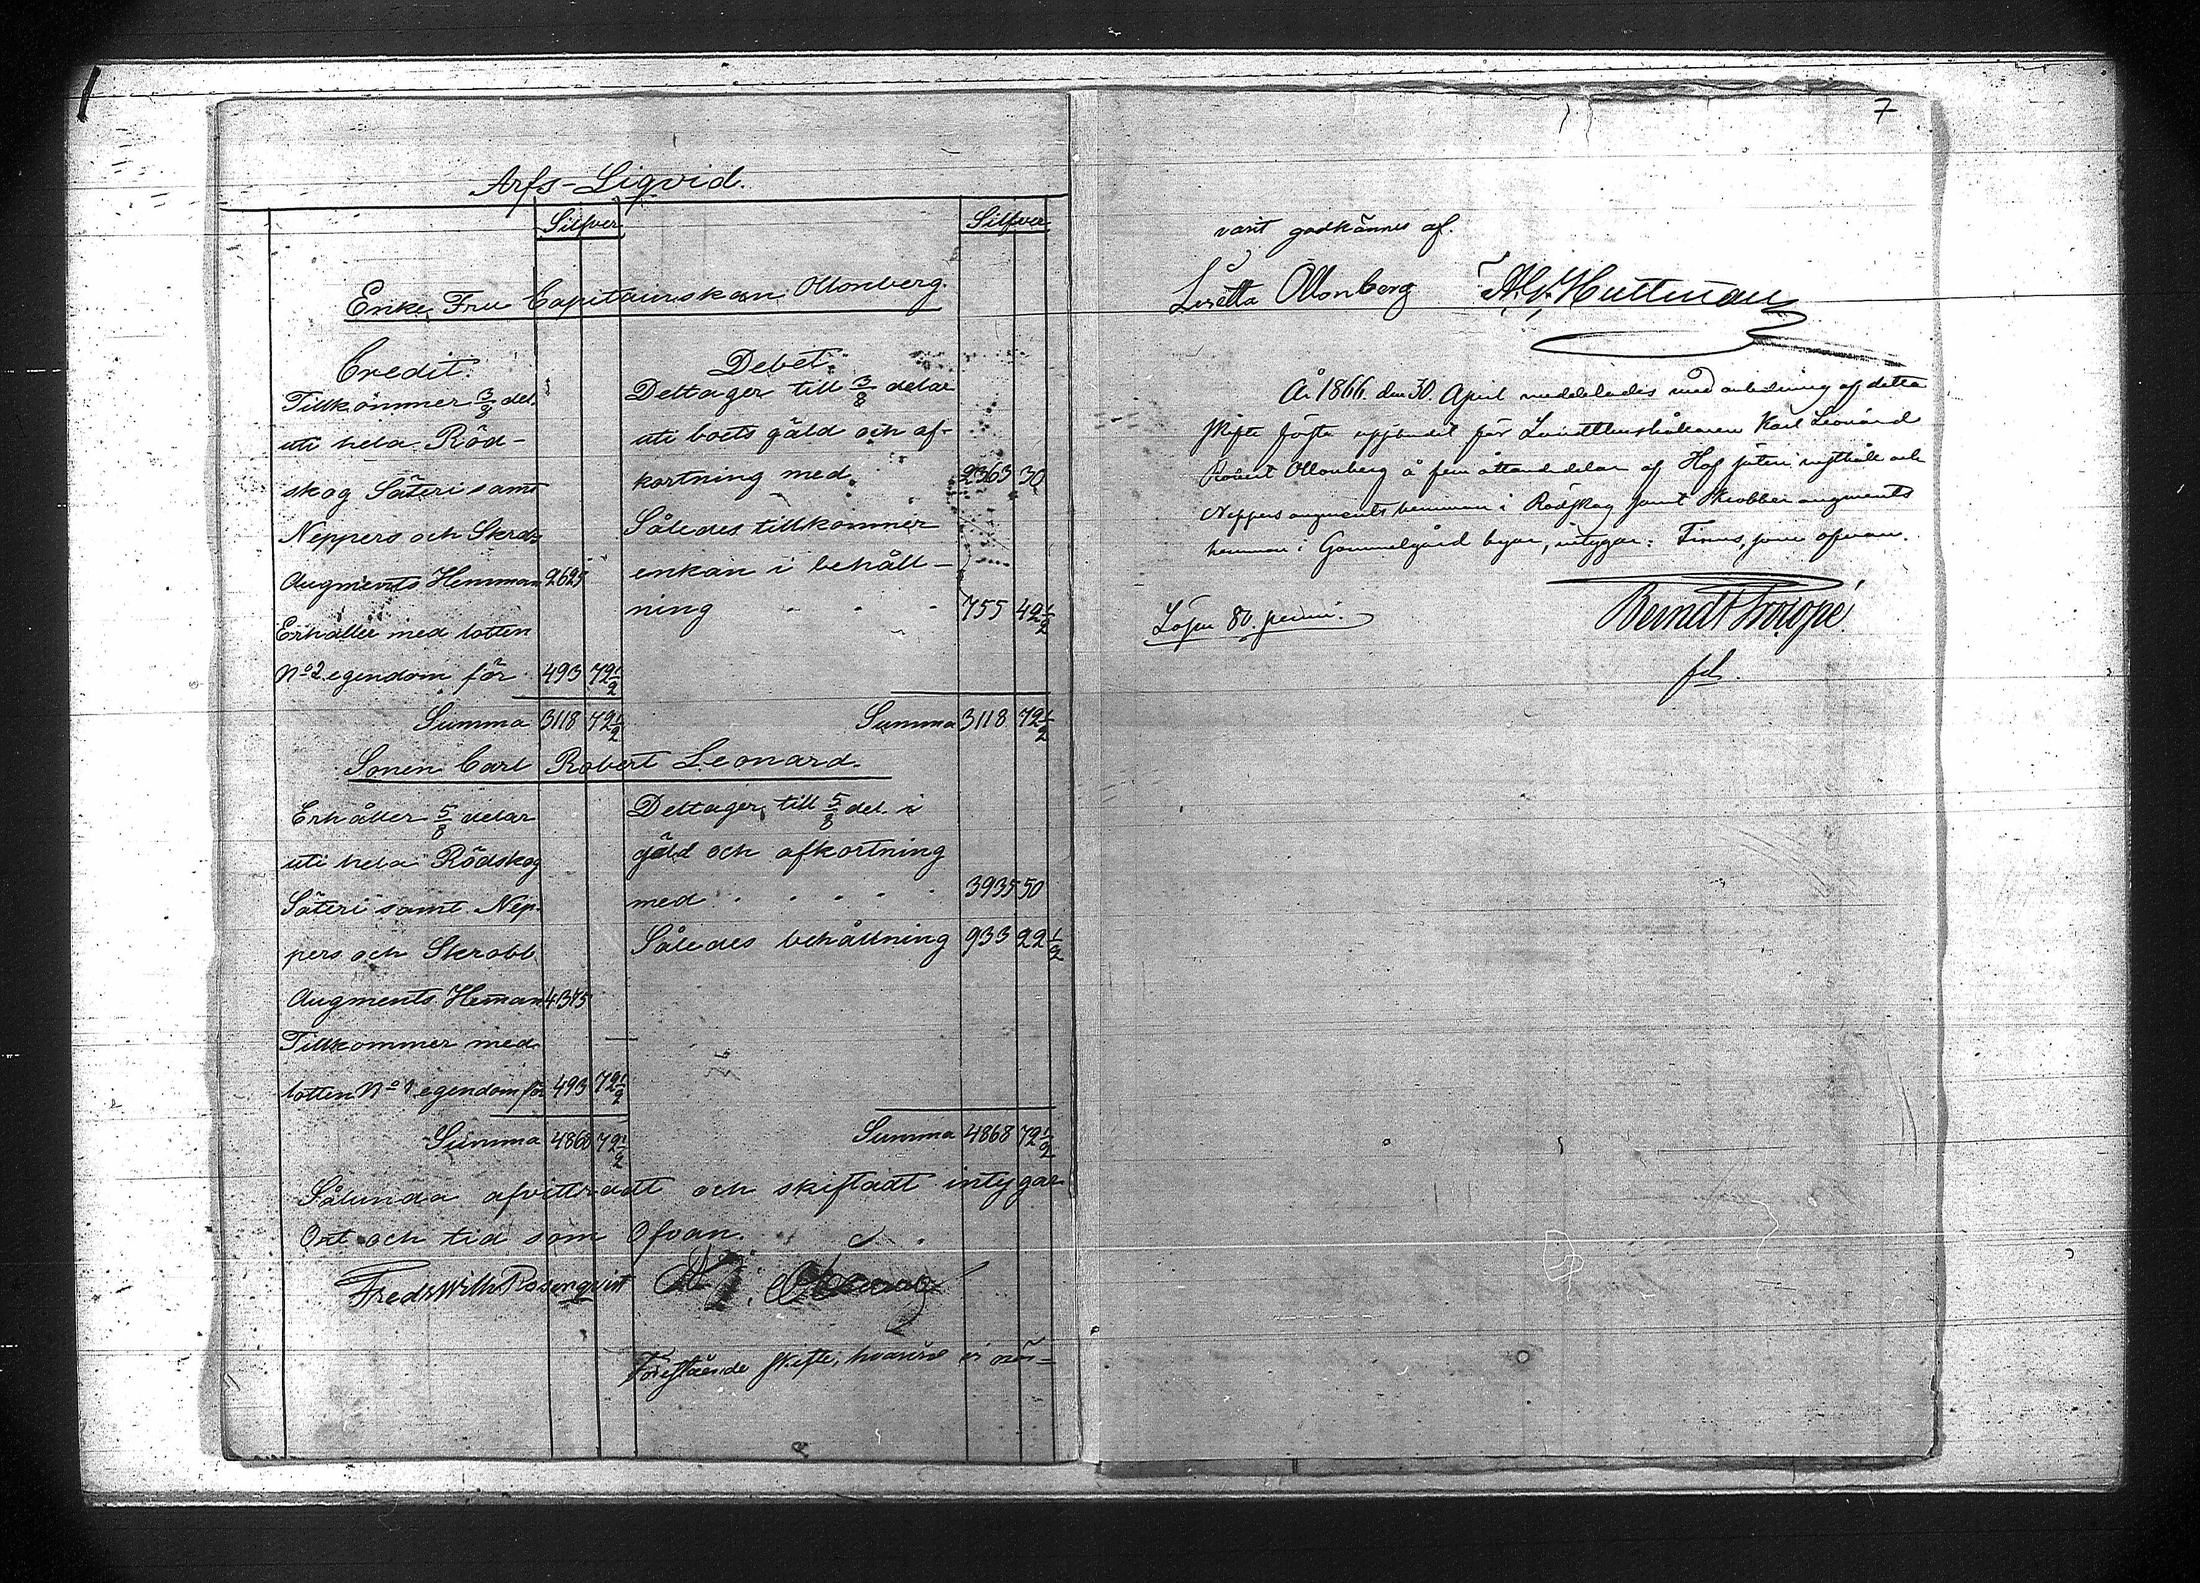 7
Arfs-Liqvid.
Silfver
Silfver
Enke Fru Capitainskan Ollonberg.
Credit.
Tillkommer 3/8 del.
uti hela Röd-
skog Säteri samt
Neppers och Skrobb
Augments Hemman 2625
Erhåller med lotten
No 2 egendom för 493 72 1/2
Summa 3118 72 1/2
Debet.
Deltager till 3/8 delar
uti boets gäld och af-
kortning med 2363 30
Således tillkommer
enkan i behåll-
ning 755 42 1/2
Summa 3118 72 1/2
Sonen Carl Robert Leonard.
Erhåller 5/8 delar
uti hela Rödskog
Säteri samt Nep-
pers och Skrobb
Augments Heman 4375
Tillkommer med
lotten No 1 egendom för 493 72 1/2
Summa 4868 72 1/2
Deltager till 5/8 del. i
gäld och afkortning
med 3935 50
Således behållning 933 22 1/2
Summa 4868 72 1/2
Sålunda afvittradt och skiftadt intygar
Ort och tid som Ofvan.
Fredr Wilh Rosenqvist
Förestående skifte, hvarmed vi nöi=
varit godkännes af.
Lisetta Ollonberg
År 1866 den 30. April meddelades med anledning af detta
skifte första uppbudet för Landthushållaren Karl Leonard
Robert Ollonberg å fem åttondedelar af Hof säteri rusthåll och
Neppers augments hemman i Rödskog samt Skrobbes augments
hemman i Gammelgård byar, intygar: Tinns, som ofvan.
Berndt Forope
Lösen 80. penni.